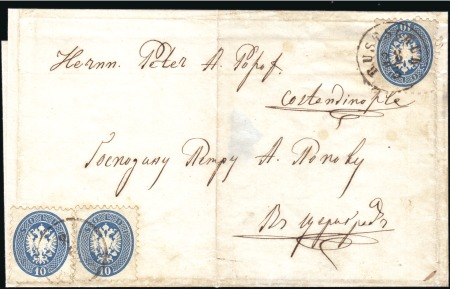 Herrn. Peter A. Popof.
Costandinople
Господину Петру А. Попову
Въ Цариградъ
10 10